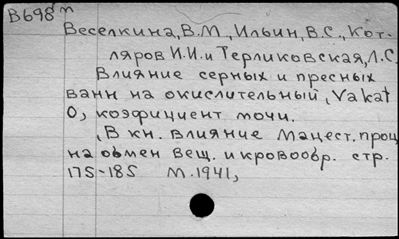 В698п
Веселкина, В.М., Ильин, В.С., Кот-
ляров И.И. и Терликовская, Л.С.
Влияние серных и пресных
ванн на окислительный, Vakat
О, коэфициент мочи.
, В кн. Влияние Мацест. проц.
на обмен вещ. и кровообр. стр.
175-185 М. 1941,